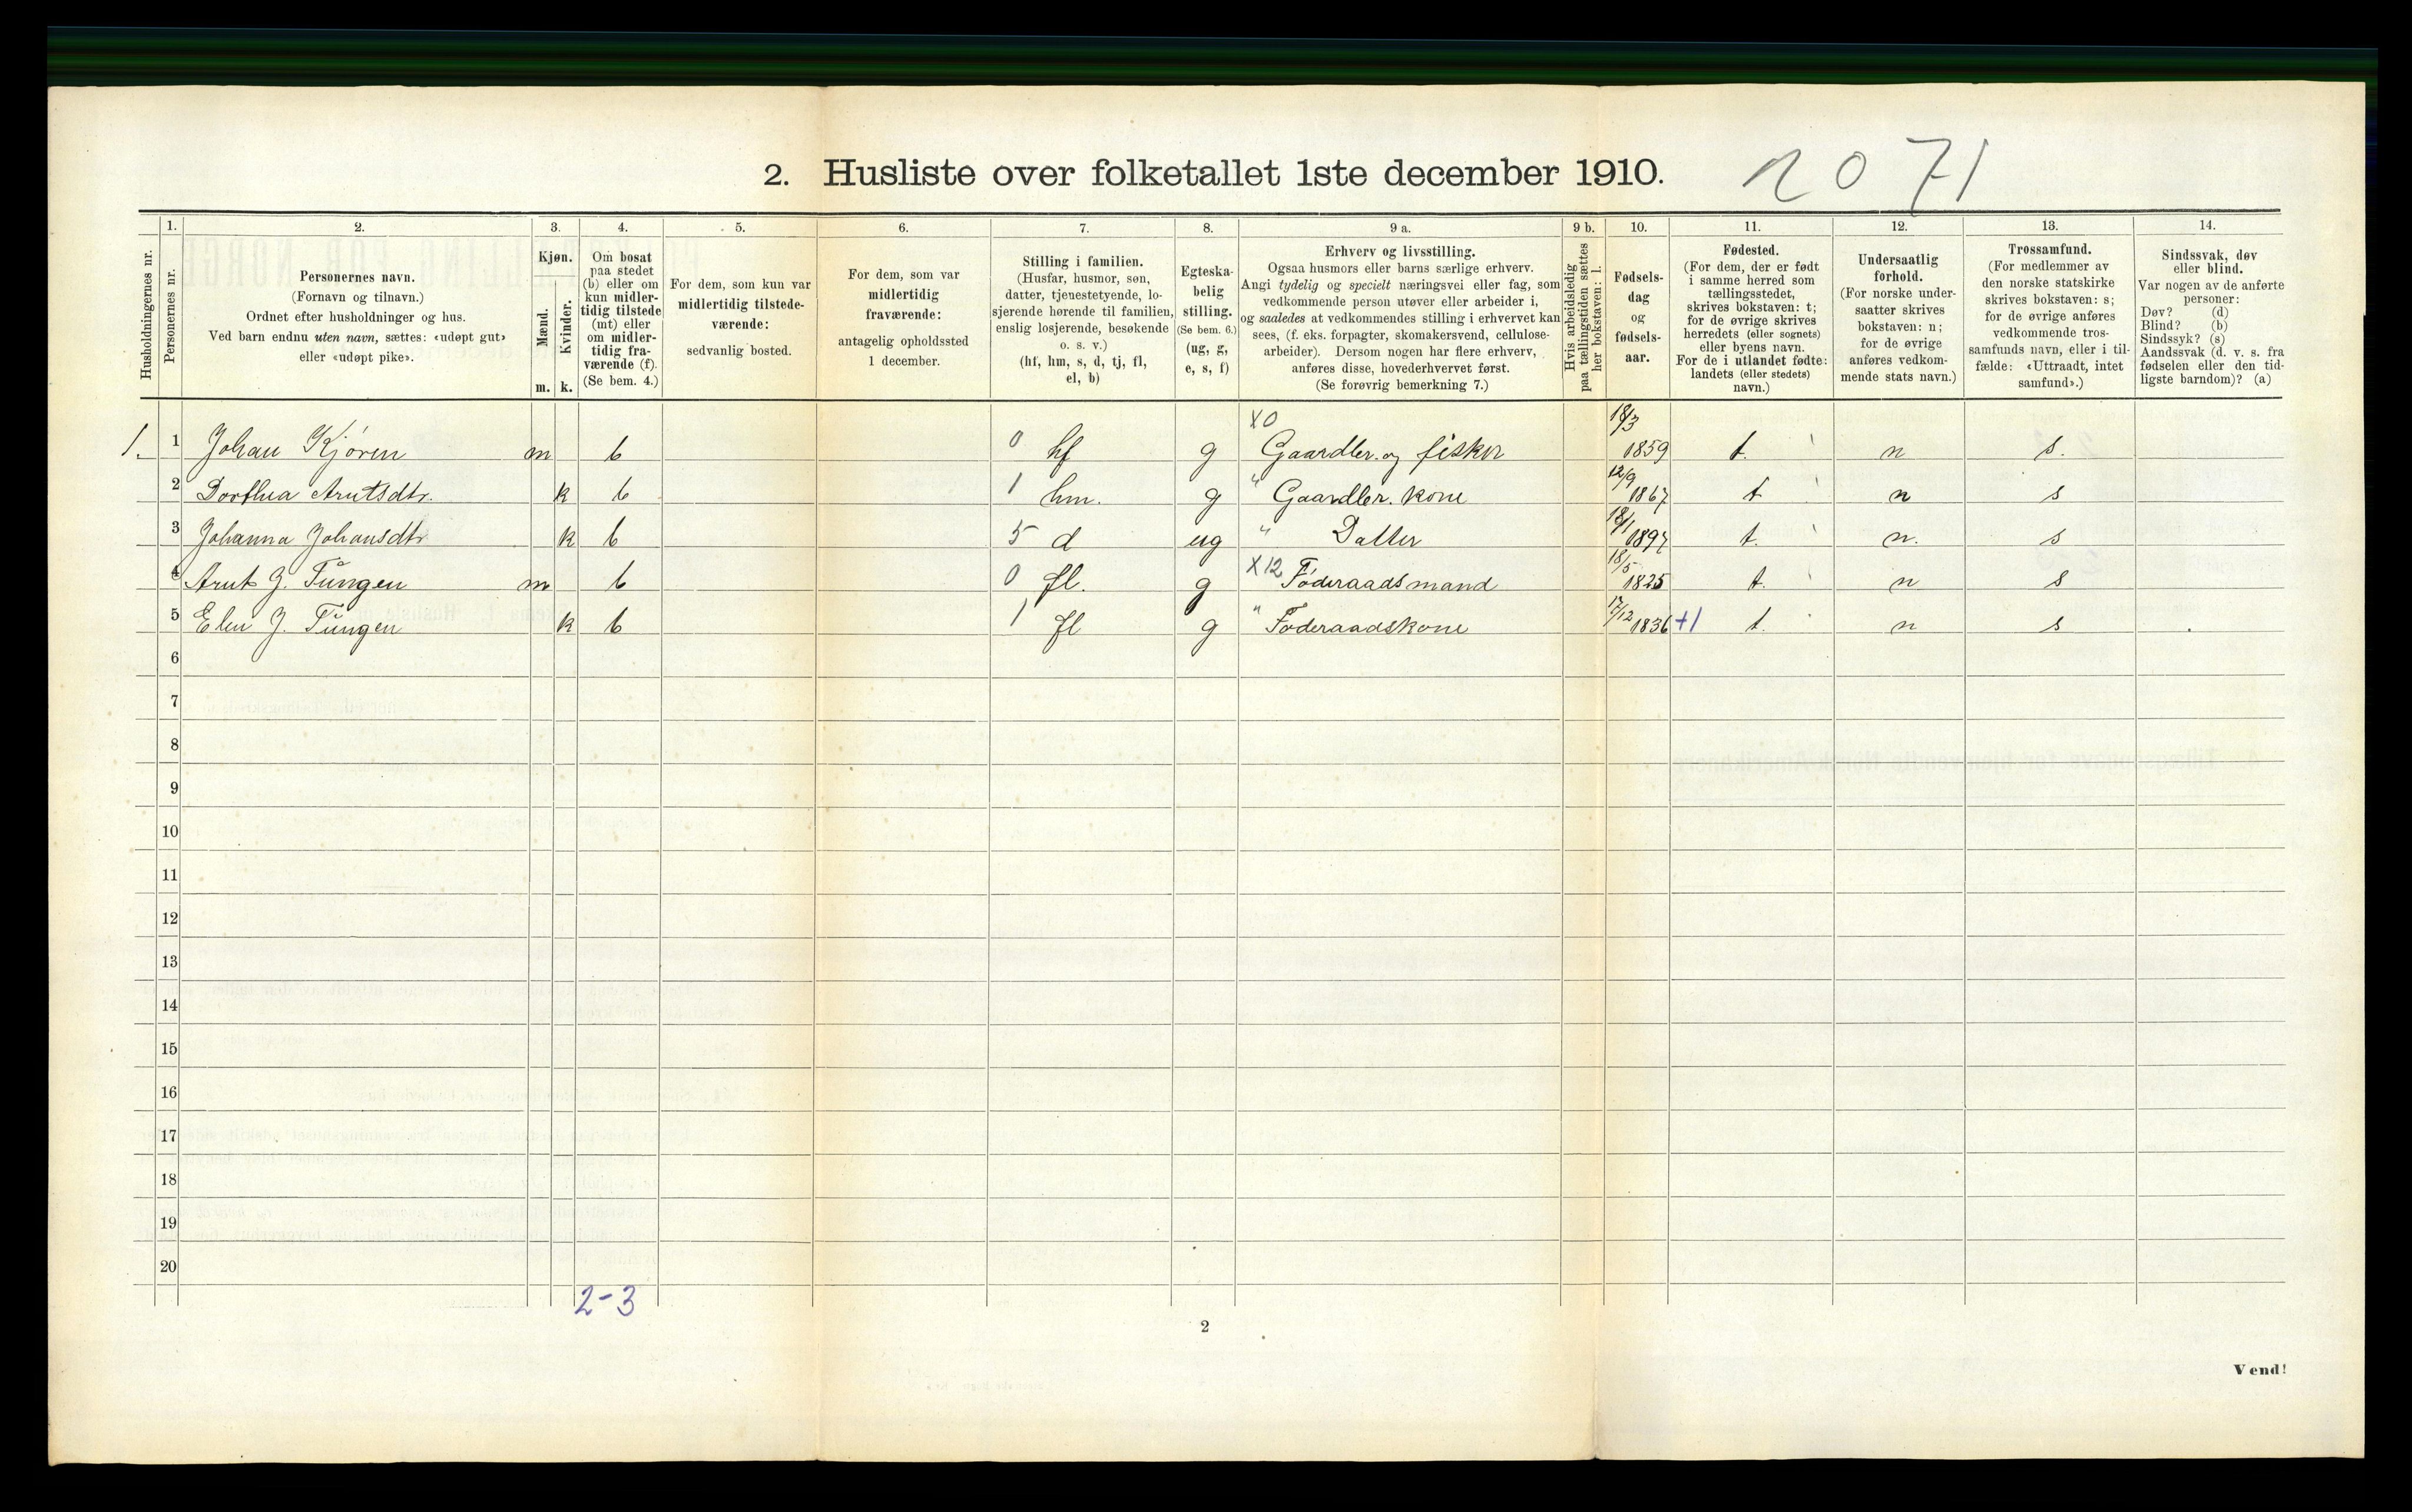 2. Husliste over folketallet 1ste december 1910. 2071
Husholdningernes nr.
1. Personernes nr.
2. Personernes navn.
(Fornavn og tilnavn.)
Ordnet efter husholdninger og hus.
Ved barn endnu uten navn, sættes: «udøpt gut»
eller «udøpt pike».
3. Kjøn.
Mænd. m.
Kvinder. k.
4. Om bosat
paa stedet
(b) eller om
kun midler-
tidig tilstede
(mt) eller
om midler-
tidig fra-
værende (f).
(Se bem. 4.)
5. For dem, som kun var
midlertidig tilstede-
værende:
sedvanlig bosted.
6. For dem, som var
midlertidig
fraværende:
antagelig opholdssted
1 december.
7. Stilling i familien.
(Husfar, husmor, søn,
datter, tjenestetyende, lo-
sjerende hørende til familien,
enslig losjerende, besøkende
o. s. v.)
(hf, hm, s, d, tj, fl,
el, b)
8. Egteska-
belig
stilling.
(Se bem. 6.)
(ug, g,
e, s, f)
9 a. Erhverv og livsstilling.
Ogsaa husmors eller barns særlige erhverv.
Angi tydelig og specielt næringsvei eller fag, som
vedkommende person utøver eller arbeider i,
og saaledes at vedkommendes stilling i erhvervet kan
sees, (f. eks. forpagter, skomakersvend, cellulose-
arbeider). Dersom nogen har flere erhverv,
anføres disse, hovederhvervet først.
(Se forøvrig bemerkning 7.)
9 b. Hvis arbeidsledig
paa tællingstiden sættes
her bokstaven: l.
10. Fødsels-
dag
og
fødsels-
aar.
11. Fødested.
(For dem, der er født
i samme herred som
tællingsstedet,
skrives bokstaven: t;
for de øvrige skrives
herredets (eller sognets)
eller byens navn.
For de i utlandet fødte:
landets (eller stedets)
navn.)
12. Undersaatlig
forhold.
(For norske under-
saatter skrives
bokstaven: n;
for de øvrige
anføres vedkom-
mende stats navn.)
13. Trossamfund.
(For medlemmer av
den norske statskirke
skrives bokstaven: s;
for de øvrige anføres
vedkommende tros-
samfunds navn, eller i til-
fælde: «Uttraadt, intet
samfund».)
14. Sindssvak, døv
eller blind.
Var nogen av de anførte
personer:
Døv? (d)
Blind? (b)
Sindssyk? (s)
Aandssvak (d. v. s. fra
fødselen eller den tid-
ligste barndom)? (a)
1. 1 Johan Kjøren m b 0 hf g X0 Gaardbr. og fisker 18/3 1859 t. n s.
2 Dorthea Arntsdtr. k b 1 hm. g " Gaardbr. kone 12/9 1867 t n s
3 Johanna Johansdtr k b 5 d ug " Datter 18/1 1897 t. n. s
4 Arnt J. Tungen m b 0 fl. g X12 Føderaadsmand 18/5 1825 t. n s
5 Elen J. Tungen k b 1 fl g " Føderaadskone 17/12 1836 +1 t. n s
6
7
8
9
10
11
12
13
14
15
16
17
18
19
20
2-3
2
Vend!